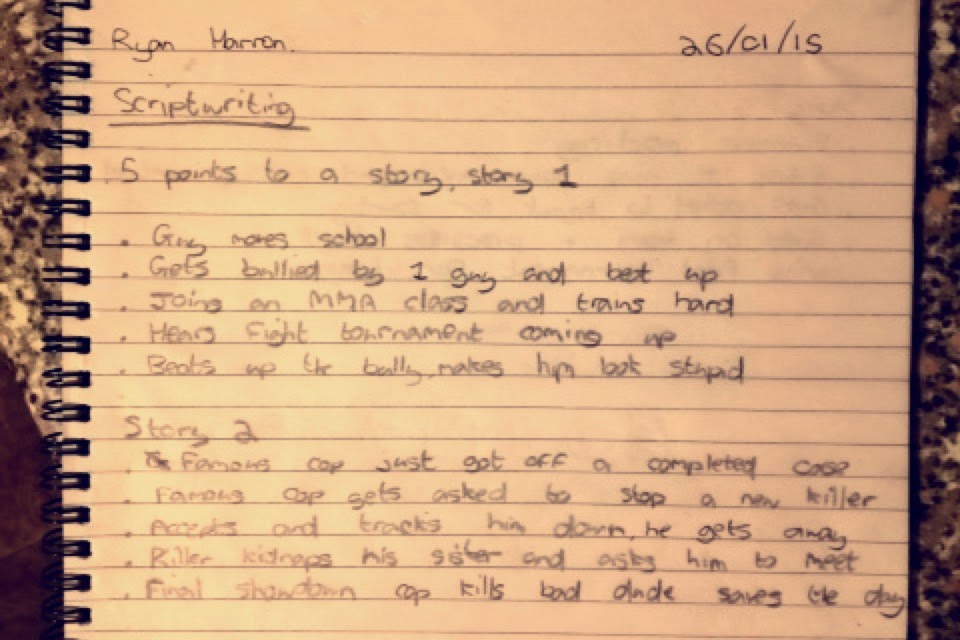 Ryan Harron.
26/01/15
Scriptwriting
5 points to a story, story 1
• Guy moves school
• Gets bullied by 1 guy and beat up
• Joins an MMA class and trains hard
• Hears fight tournament coming up
• Beats up the bully, makes him look stupid
Story 2
• Famous cop just got off a completed case
• Famous cop gets asked to stop a new killer
• Accepts and tracks him down, he gets away
• Killer kidnaps his sister and asks him to meet
• Final showdown cop kills bad dude saves the day